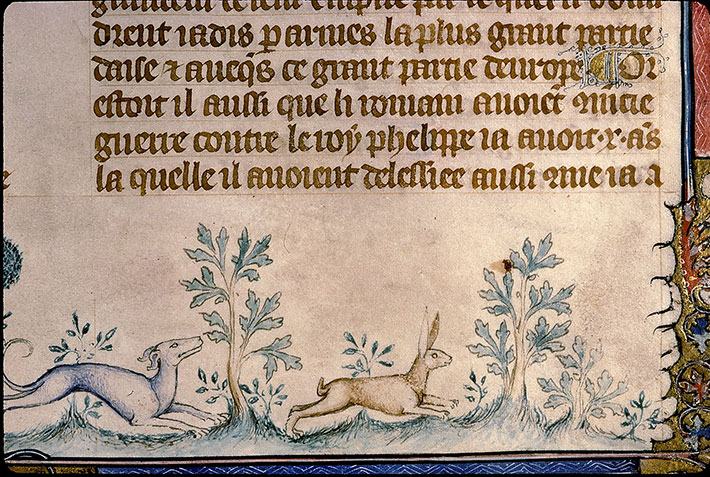 empire par le quel il
drent iadis par armes la plus grant partie
daise ⁊ aueq̄s ce grant partie deurope OR
estoit il aussi que li romain auoiēt
guerre contre le roy phelippe ia auoit .x. ās
la quelle il auoient delessiee aussi ꝯme ia a